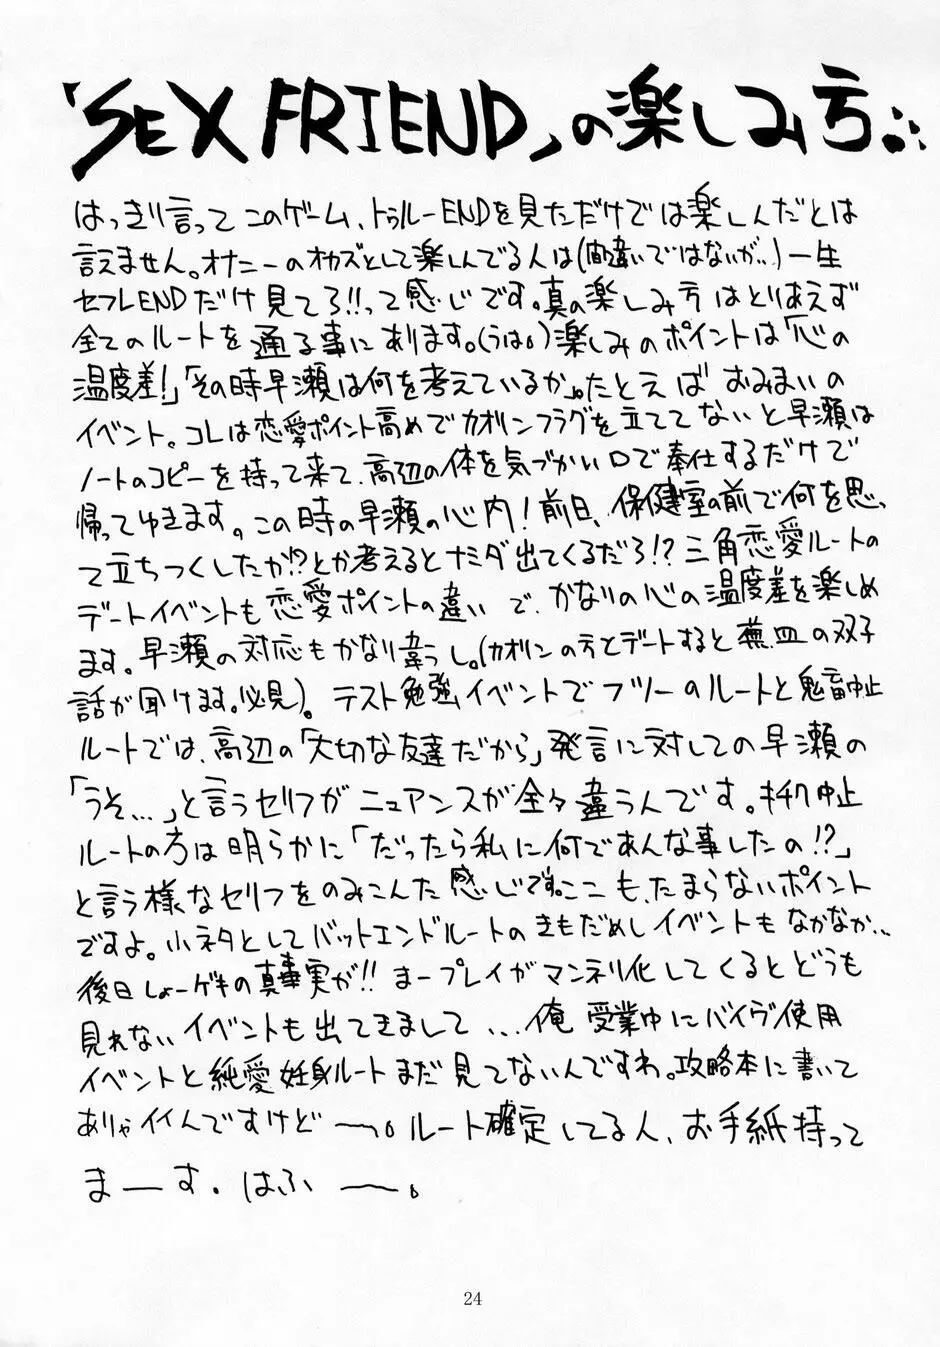 「SEX FRIEND」の楽しみ方。
はっきり言ってこのゲーム、トゥルーENDを見ただけでは楽しんだとは
言えません。オナニーのオカズとして楽しんでる人は(間違いではないが…)一生
セフレENDだけ見てろ!!って感じです。真の楽しみ方はとりあえず
全てのルートを通る事にあります。(うは。)楽しみのポイントは「心の
温度差!」「その時早瀬は何を考えているか」。たとえば おみまいの
イベント。コレは恋愛ポイント高めでカオリンフラグを立ててないと早瀬は
ノートのコピーを持って来て、高辺の体を気づかい口で奉仕するだけで
帰ってゆきます。この時の早瀬の心内!前日、保健室の前で何を思っ
て立ちつくしたか!?とか考えるとナミダ出てくるだろ!?三角恋愛ルートの
デートイベントも恋愛ポイントの違いで、かなりの心の温度差を楽しめ
ます。早瀬の対応もかなり違うし。(カオリンの方とデートすると 皿の双子
話が聞けます。必見)。テスト勉強イベントでフツーのルートと鬼畜中止
ルートでは、高辺の「大切な友達だから」発言に対しての早瀬の
「うそ…」と言うセリフがニュアンスが全々違うんです。キチク中止
ルートの方は明らかに「だったら私に何であんな事したの!?」
と言う様なセリフをのみこんだ感じです。ここも、たまらないポイント
ですよ。小ネタとしてバットエンドルートのきもだめしイベントもなかなか…
後日しょーゲキの真事実が!!まープレイがマンネリ化してくるとどうも
見れないイベントも出てきまして…俺 受業中にバイヴ使用
イベントと純愛妊身ルートまだ見てないんですわ。攻略本に書いて
ありゃイイんですけど〜。ルート確定してる人、お手紙待って
まーす。はふ〜。
24